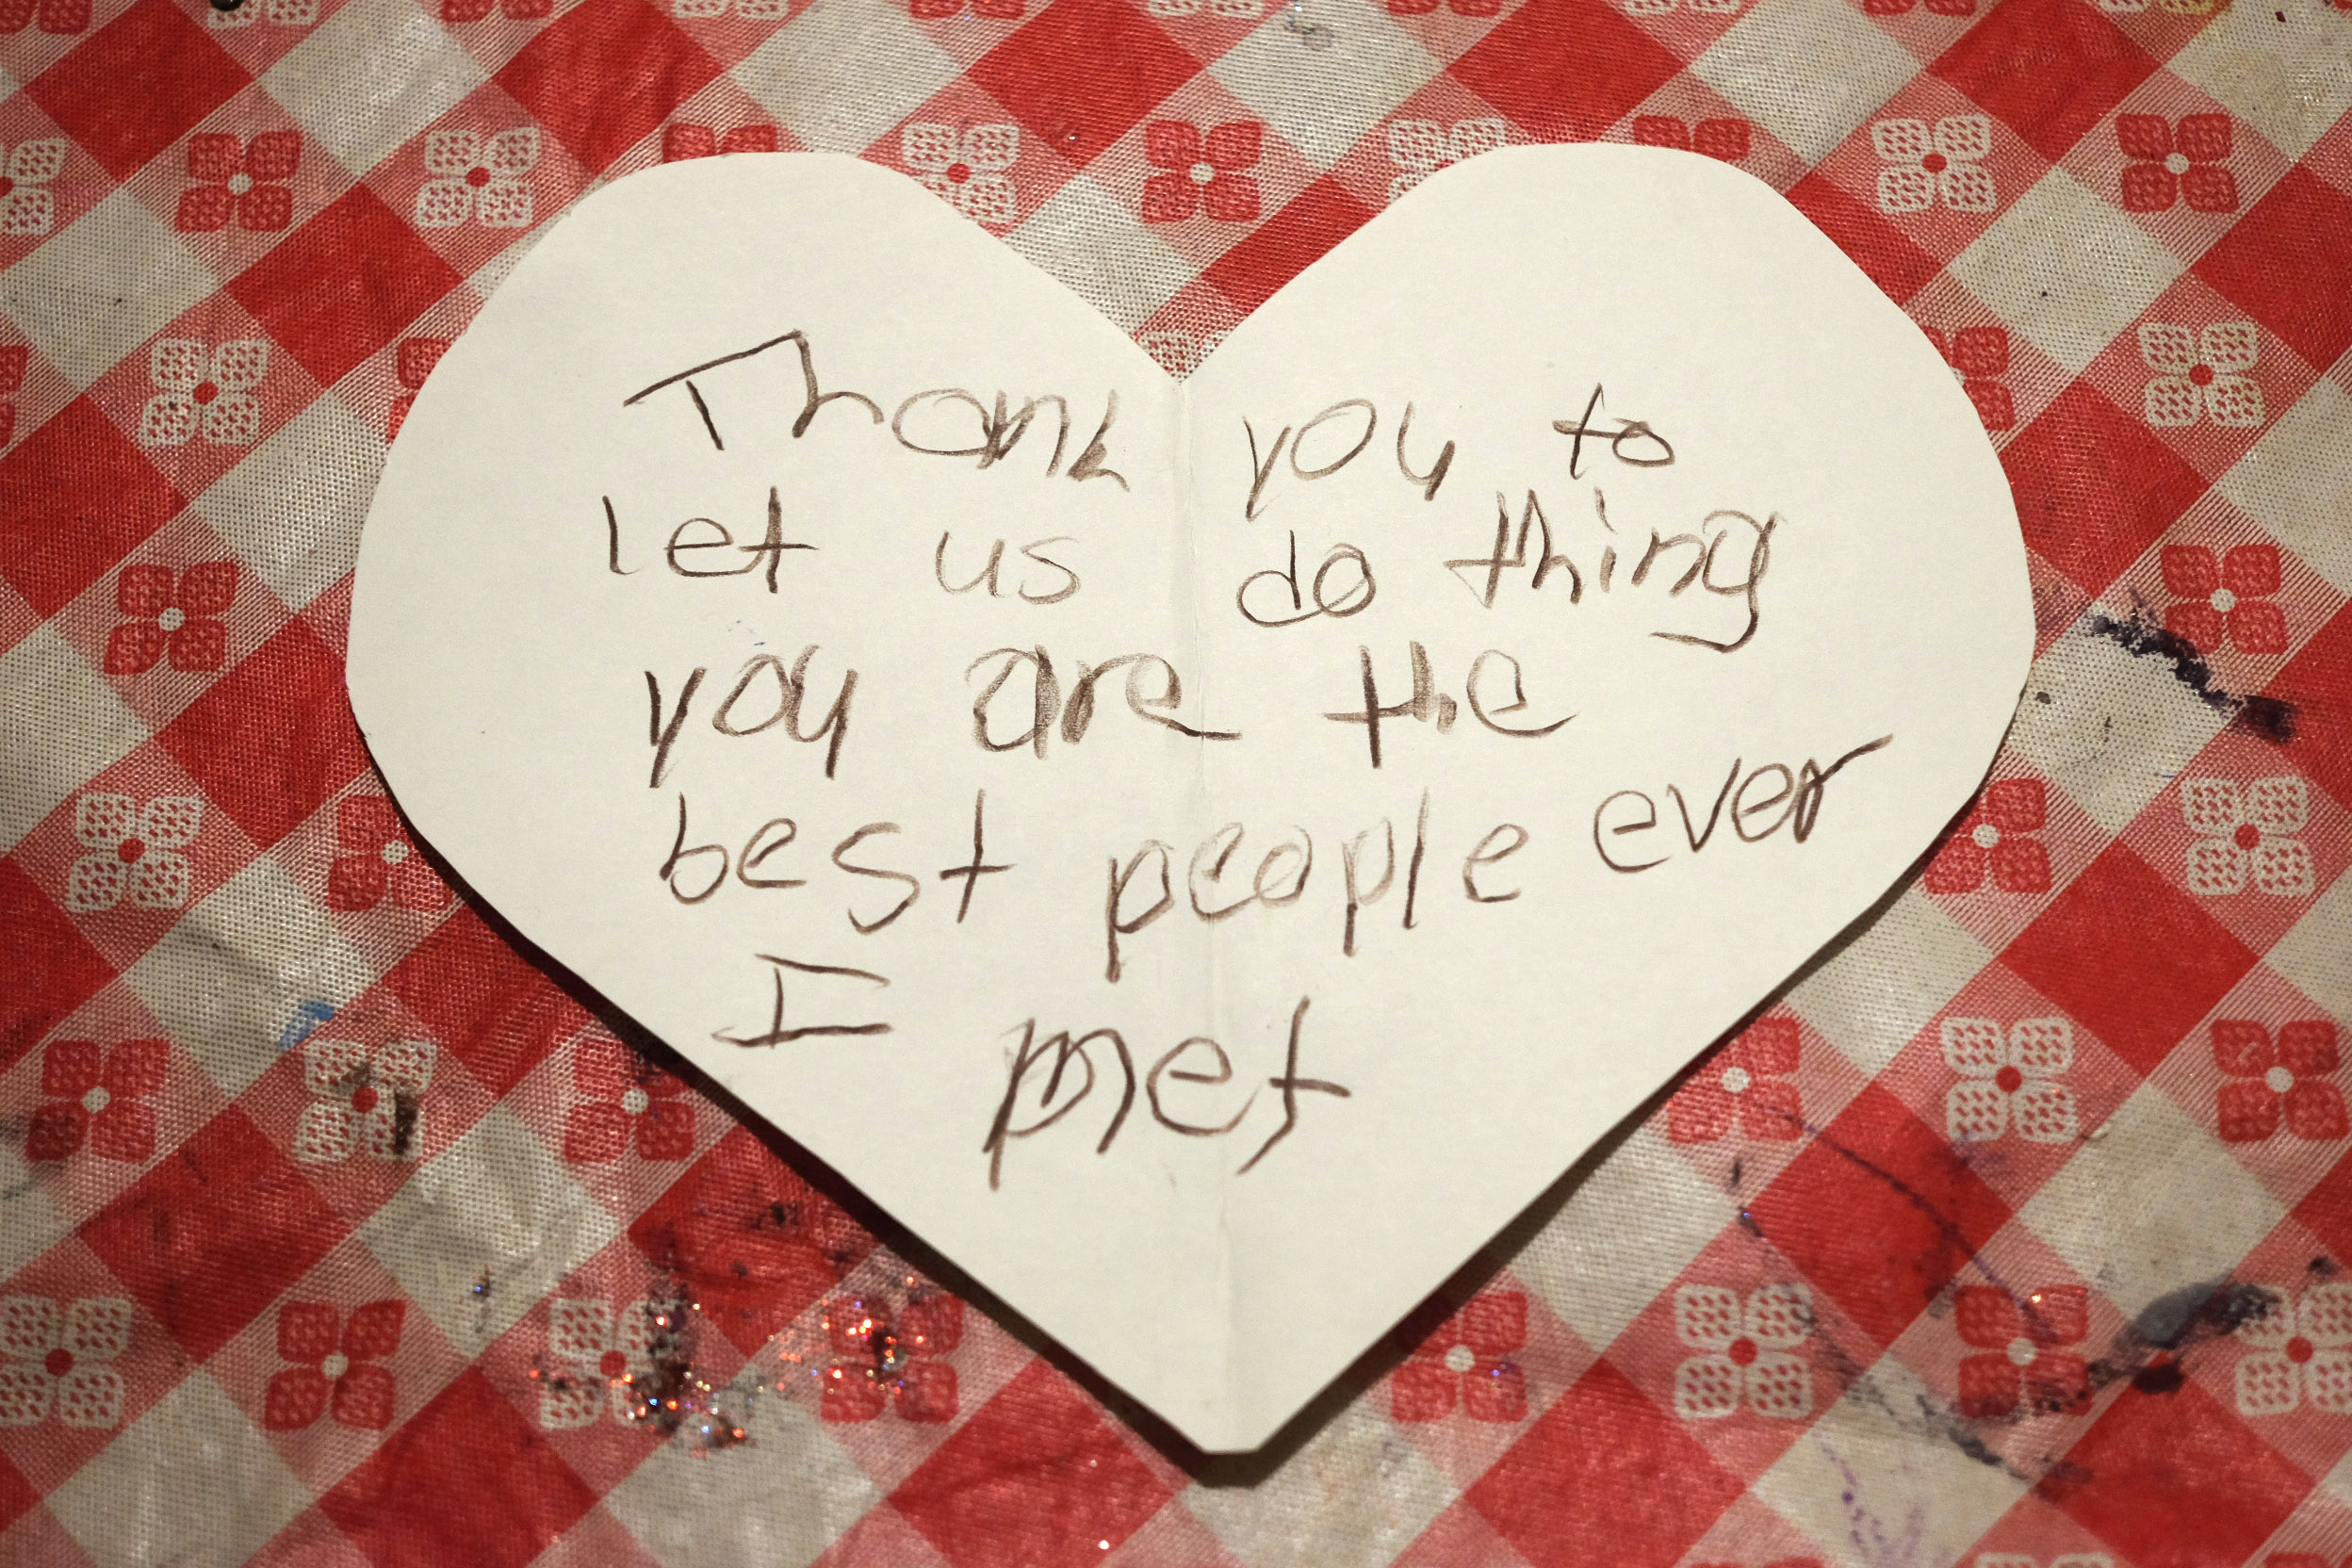 Thank you to
let us do thing
you are the
best people ever
I met